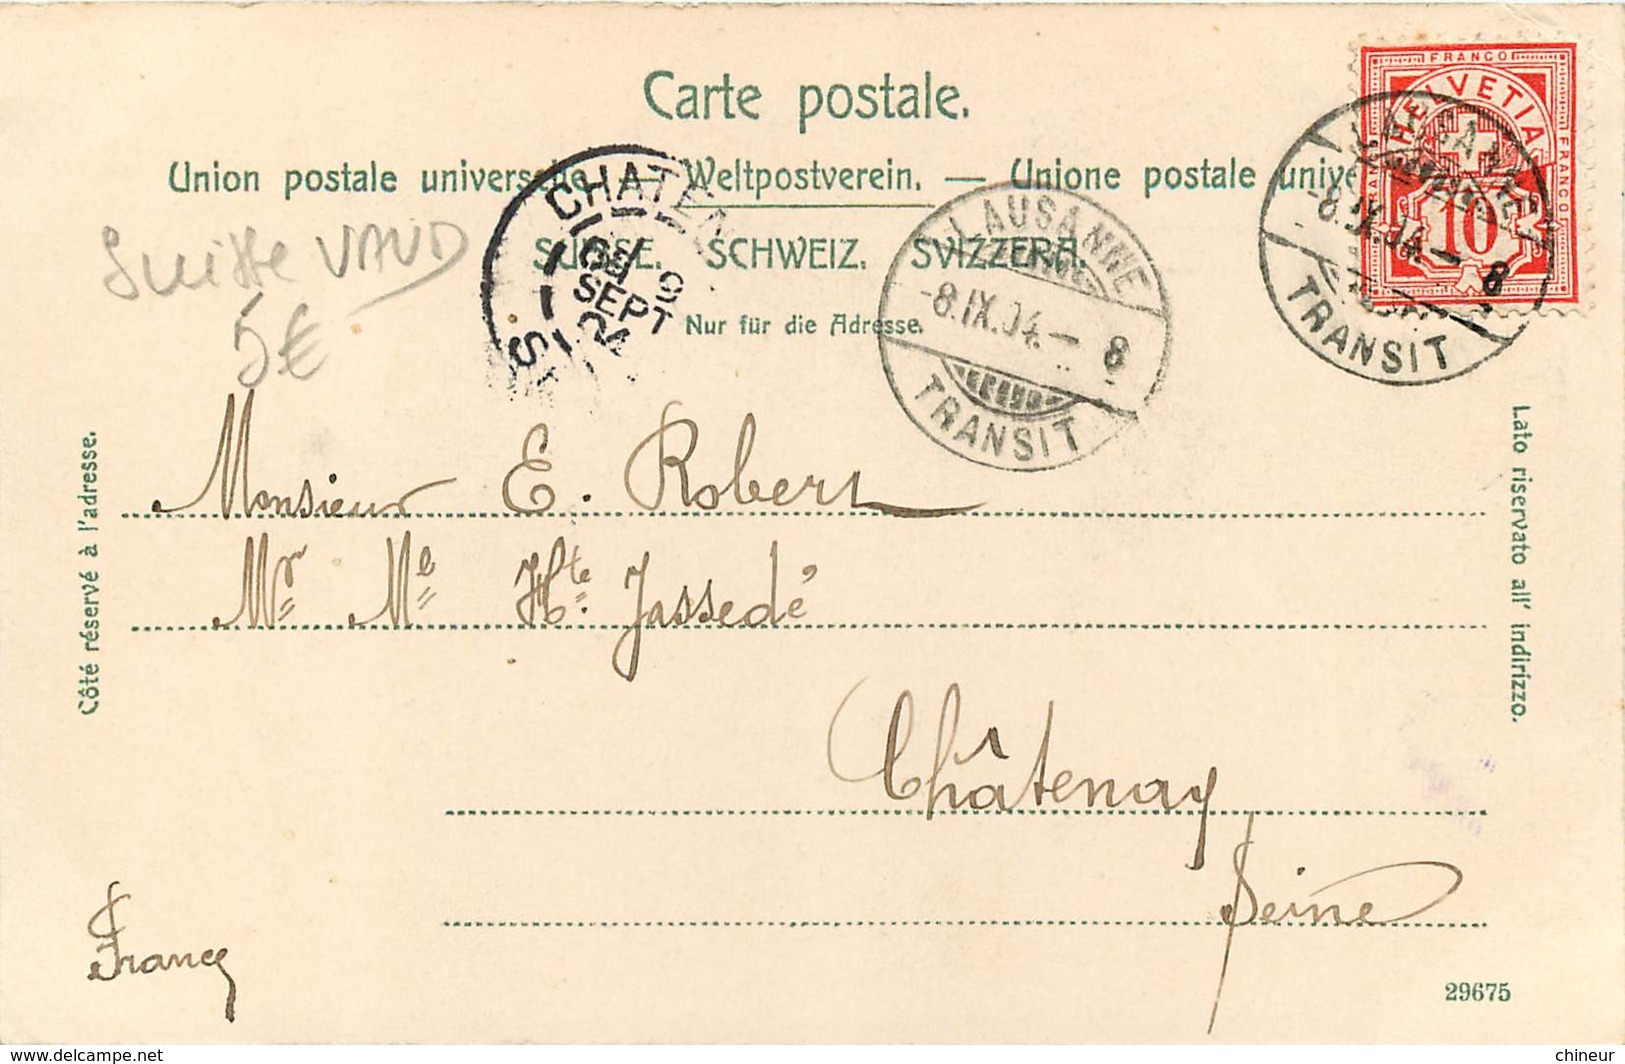 Carte postale.
Union postale universelle. — Weltpostverein. — Unione postale unive
SUISSE. SCHWEIZ. SVIZZERA.
Nur für die Adresse.
FRANCO
HELVETIA
FRANCO
10
LAUSANNE
-8.IX.04.-8
TRANSIT
LAUSANNE
-8.IX.04.-8
TRANSIT
CHATEN
9
SEPT
04
S
Suisse VAUD
5€
Côté réservé à l'adresse.
Lato riservato all' indirizzo.
Monsieur E. Robert
Mr Me Hte Jassedé
Châtenay
Seine
France
29675
www.delcampe.net
chineur